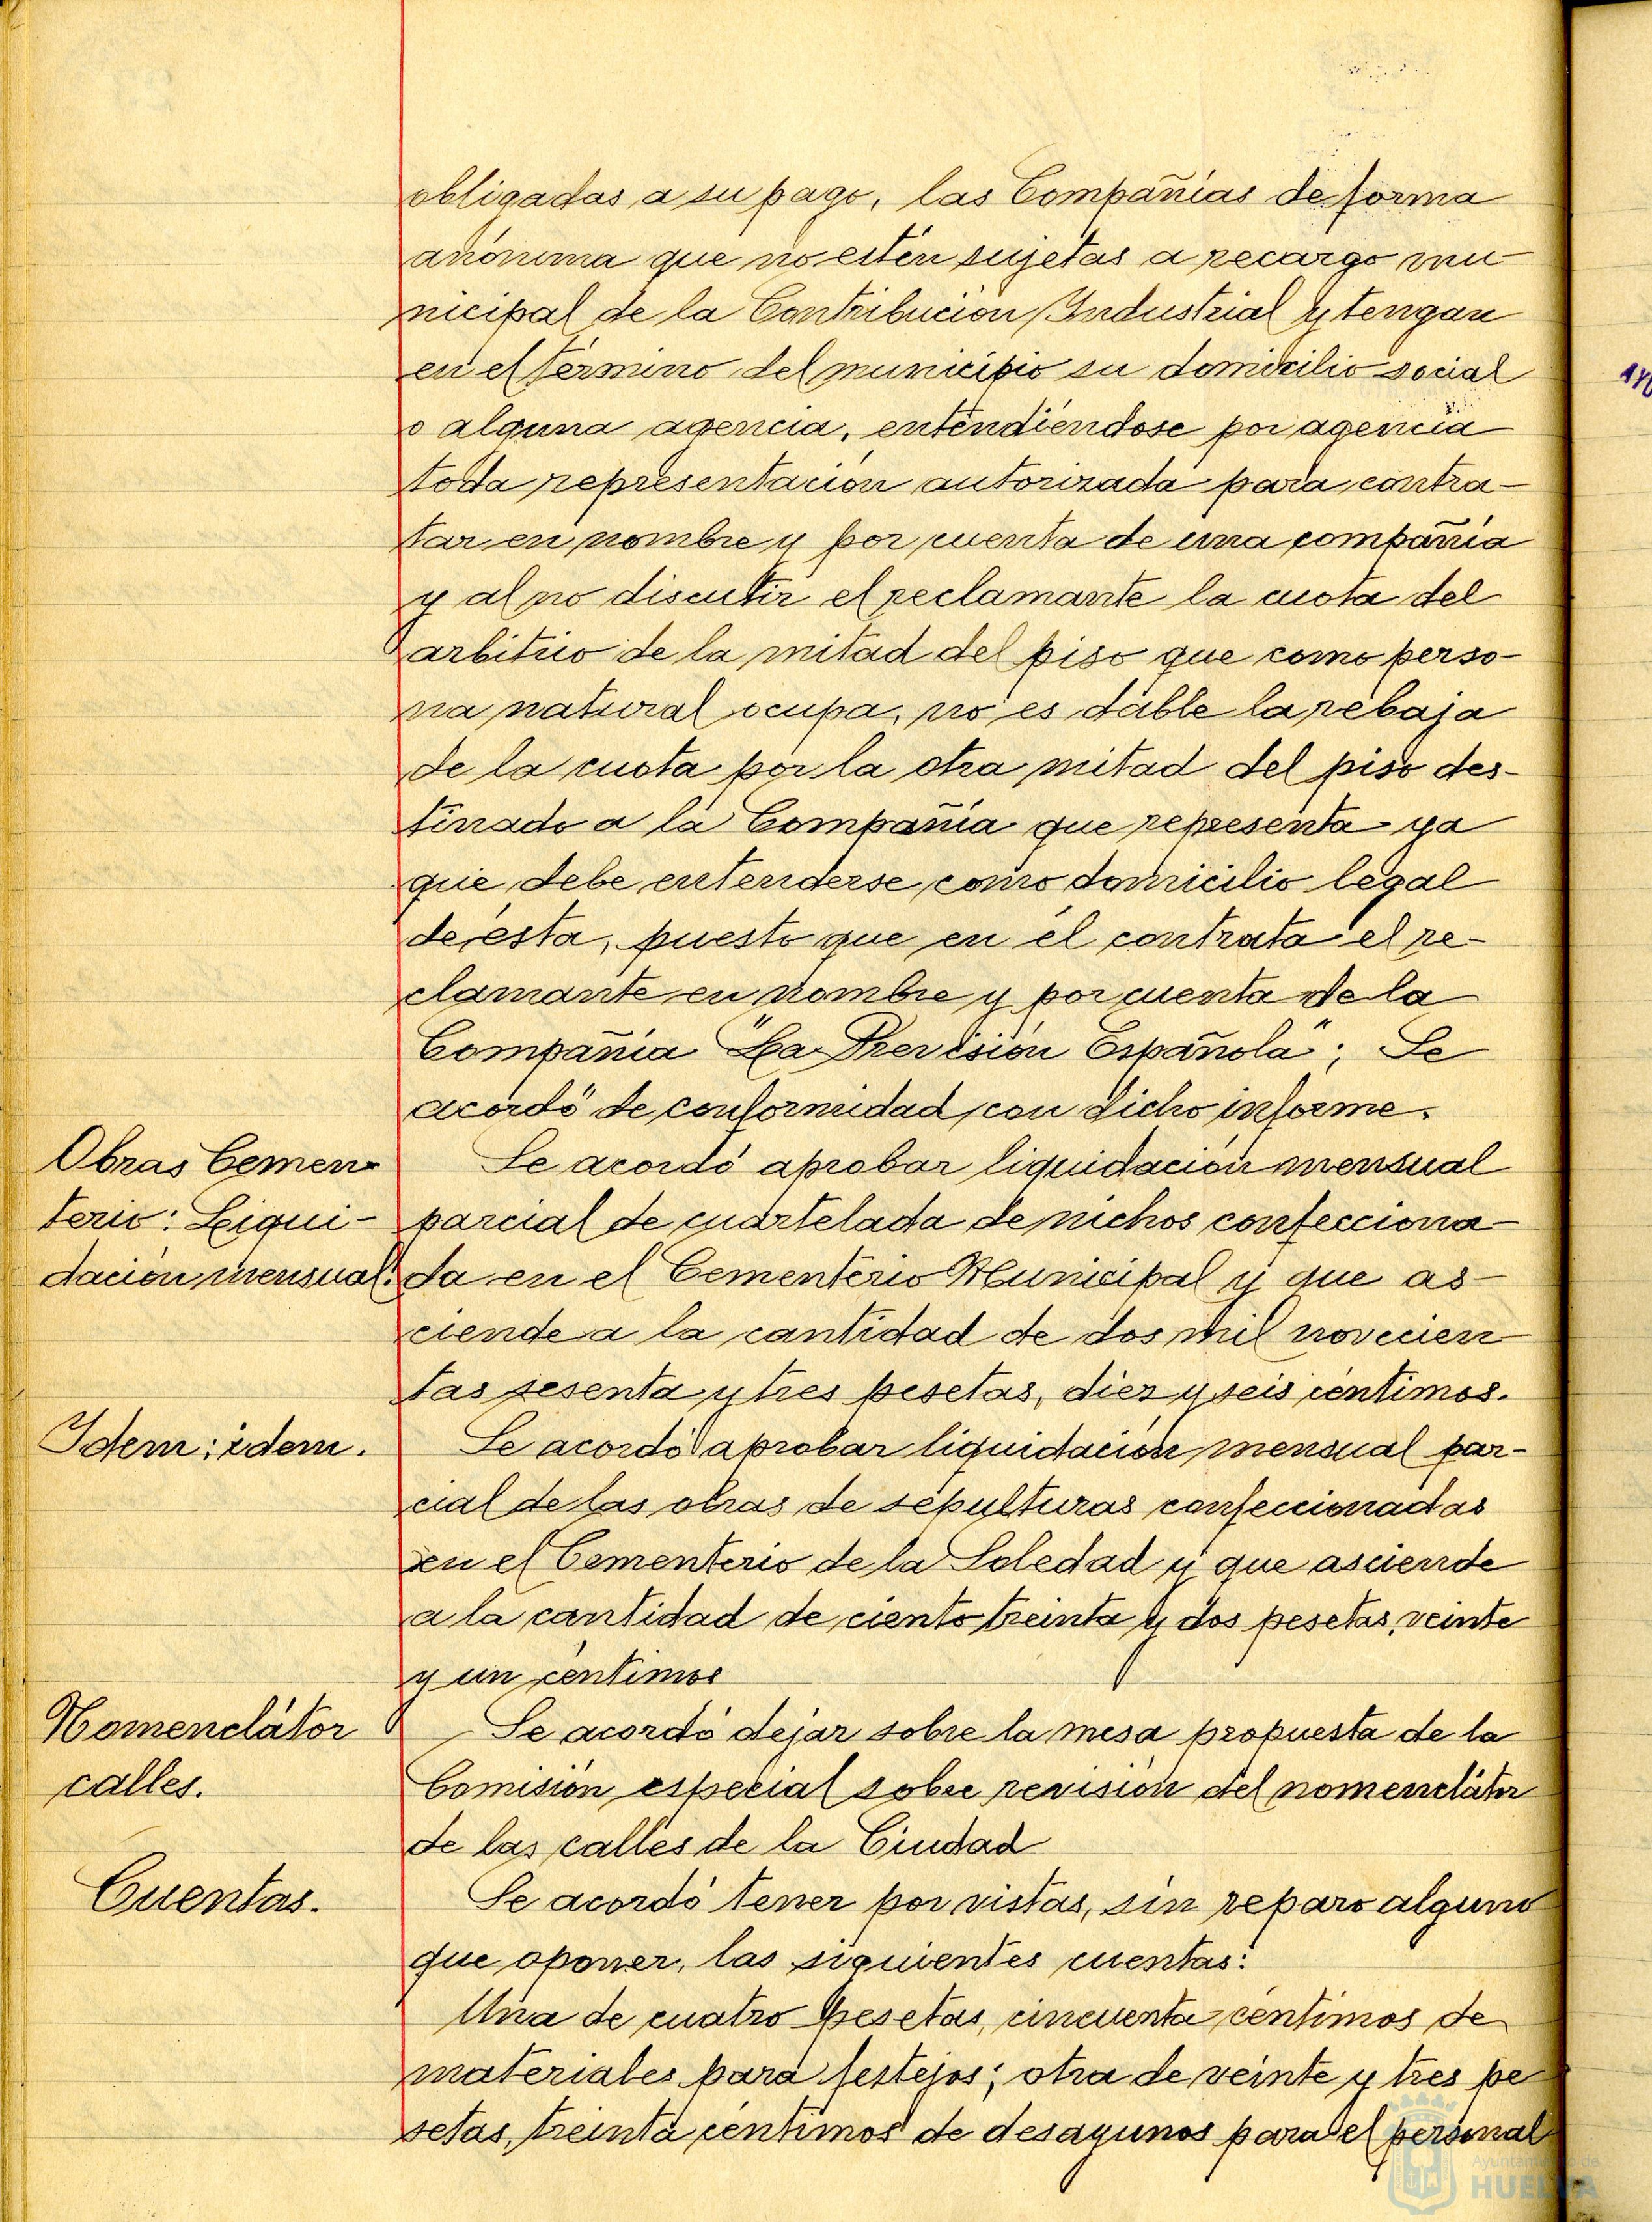 obligadas a su pago, las Compañías de forma
anónima que no estén sujetas a recargo mu
nicipal de la Contribución Industrial y tengan
en el término del municipio su domicilio social
o alguna agencia, entendiéndose por agencia
toda representación autorizada para contra-
tar en nombre y por cuenta de una compañía
y al no discutir el reclamante la cuota del
arbitrio de la mitad del piso que como perso-
na natural ocupa, no es dable la rebaja
de la cuota por la otra mitad del piso des-
tinado a la Compañía que representa ya
que debe entenderse como domicilio legal
de ésta, puesto que en él contrata el re-
clamante en nombre y por cuenta de la
Compañía "La Previsión Española"; Se
acordó de conformidad con dicho informe.
Obras Cemen-
terio: Liqui-
dación mensual.
Se acordó aprobar liquidación mensual
parcial de cuartelada de nichos confecciona-
da en el Cementerio Municipal y que as-
ciende a la cantidad de dos mil novecien
tas sesenta y tres pesetas, diez y seis céntimos.
Idem: idem.
Se acordó aprobar liquidación mensual par-
cial de las obras de sepulturas confeccionadas
en el Cementerio de la Soledad y que asciende
a la cantidad de ciento treinta y dos pesetas, veinte
y un céntimos
Nomenclátor
calles.
Se acordó dejar sobre la mesa propuesta de la
Comisión especial sobre revisión del nomenclátor
de las calles de la Ciudad
Cuentas.
Se acordó tener por vistas, sin reparo alguno
que oponer, las siguientes cuentas:
Una de cuatro pesetas, cincuenta céntimos de
materiales para festejos; otra de veinte y tres pe
setas, treinta céntimos de desayunos para el personal
Ayuntamiento de
HUELVA